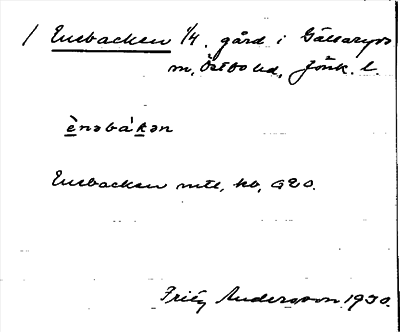 / Enebacken 1/4. gård i Gällaryds
sn, Östbo hd, Jönk. l.
è̱nəbákən
Enebacken mtl, kb, GEO.
Fritz Andersson 1930.